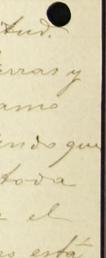 tud.
erras y
amo
endo que
toda
a el
no está